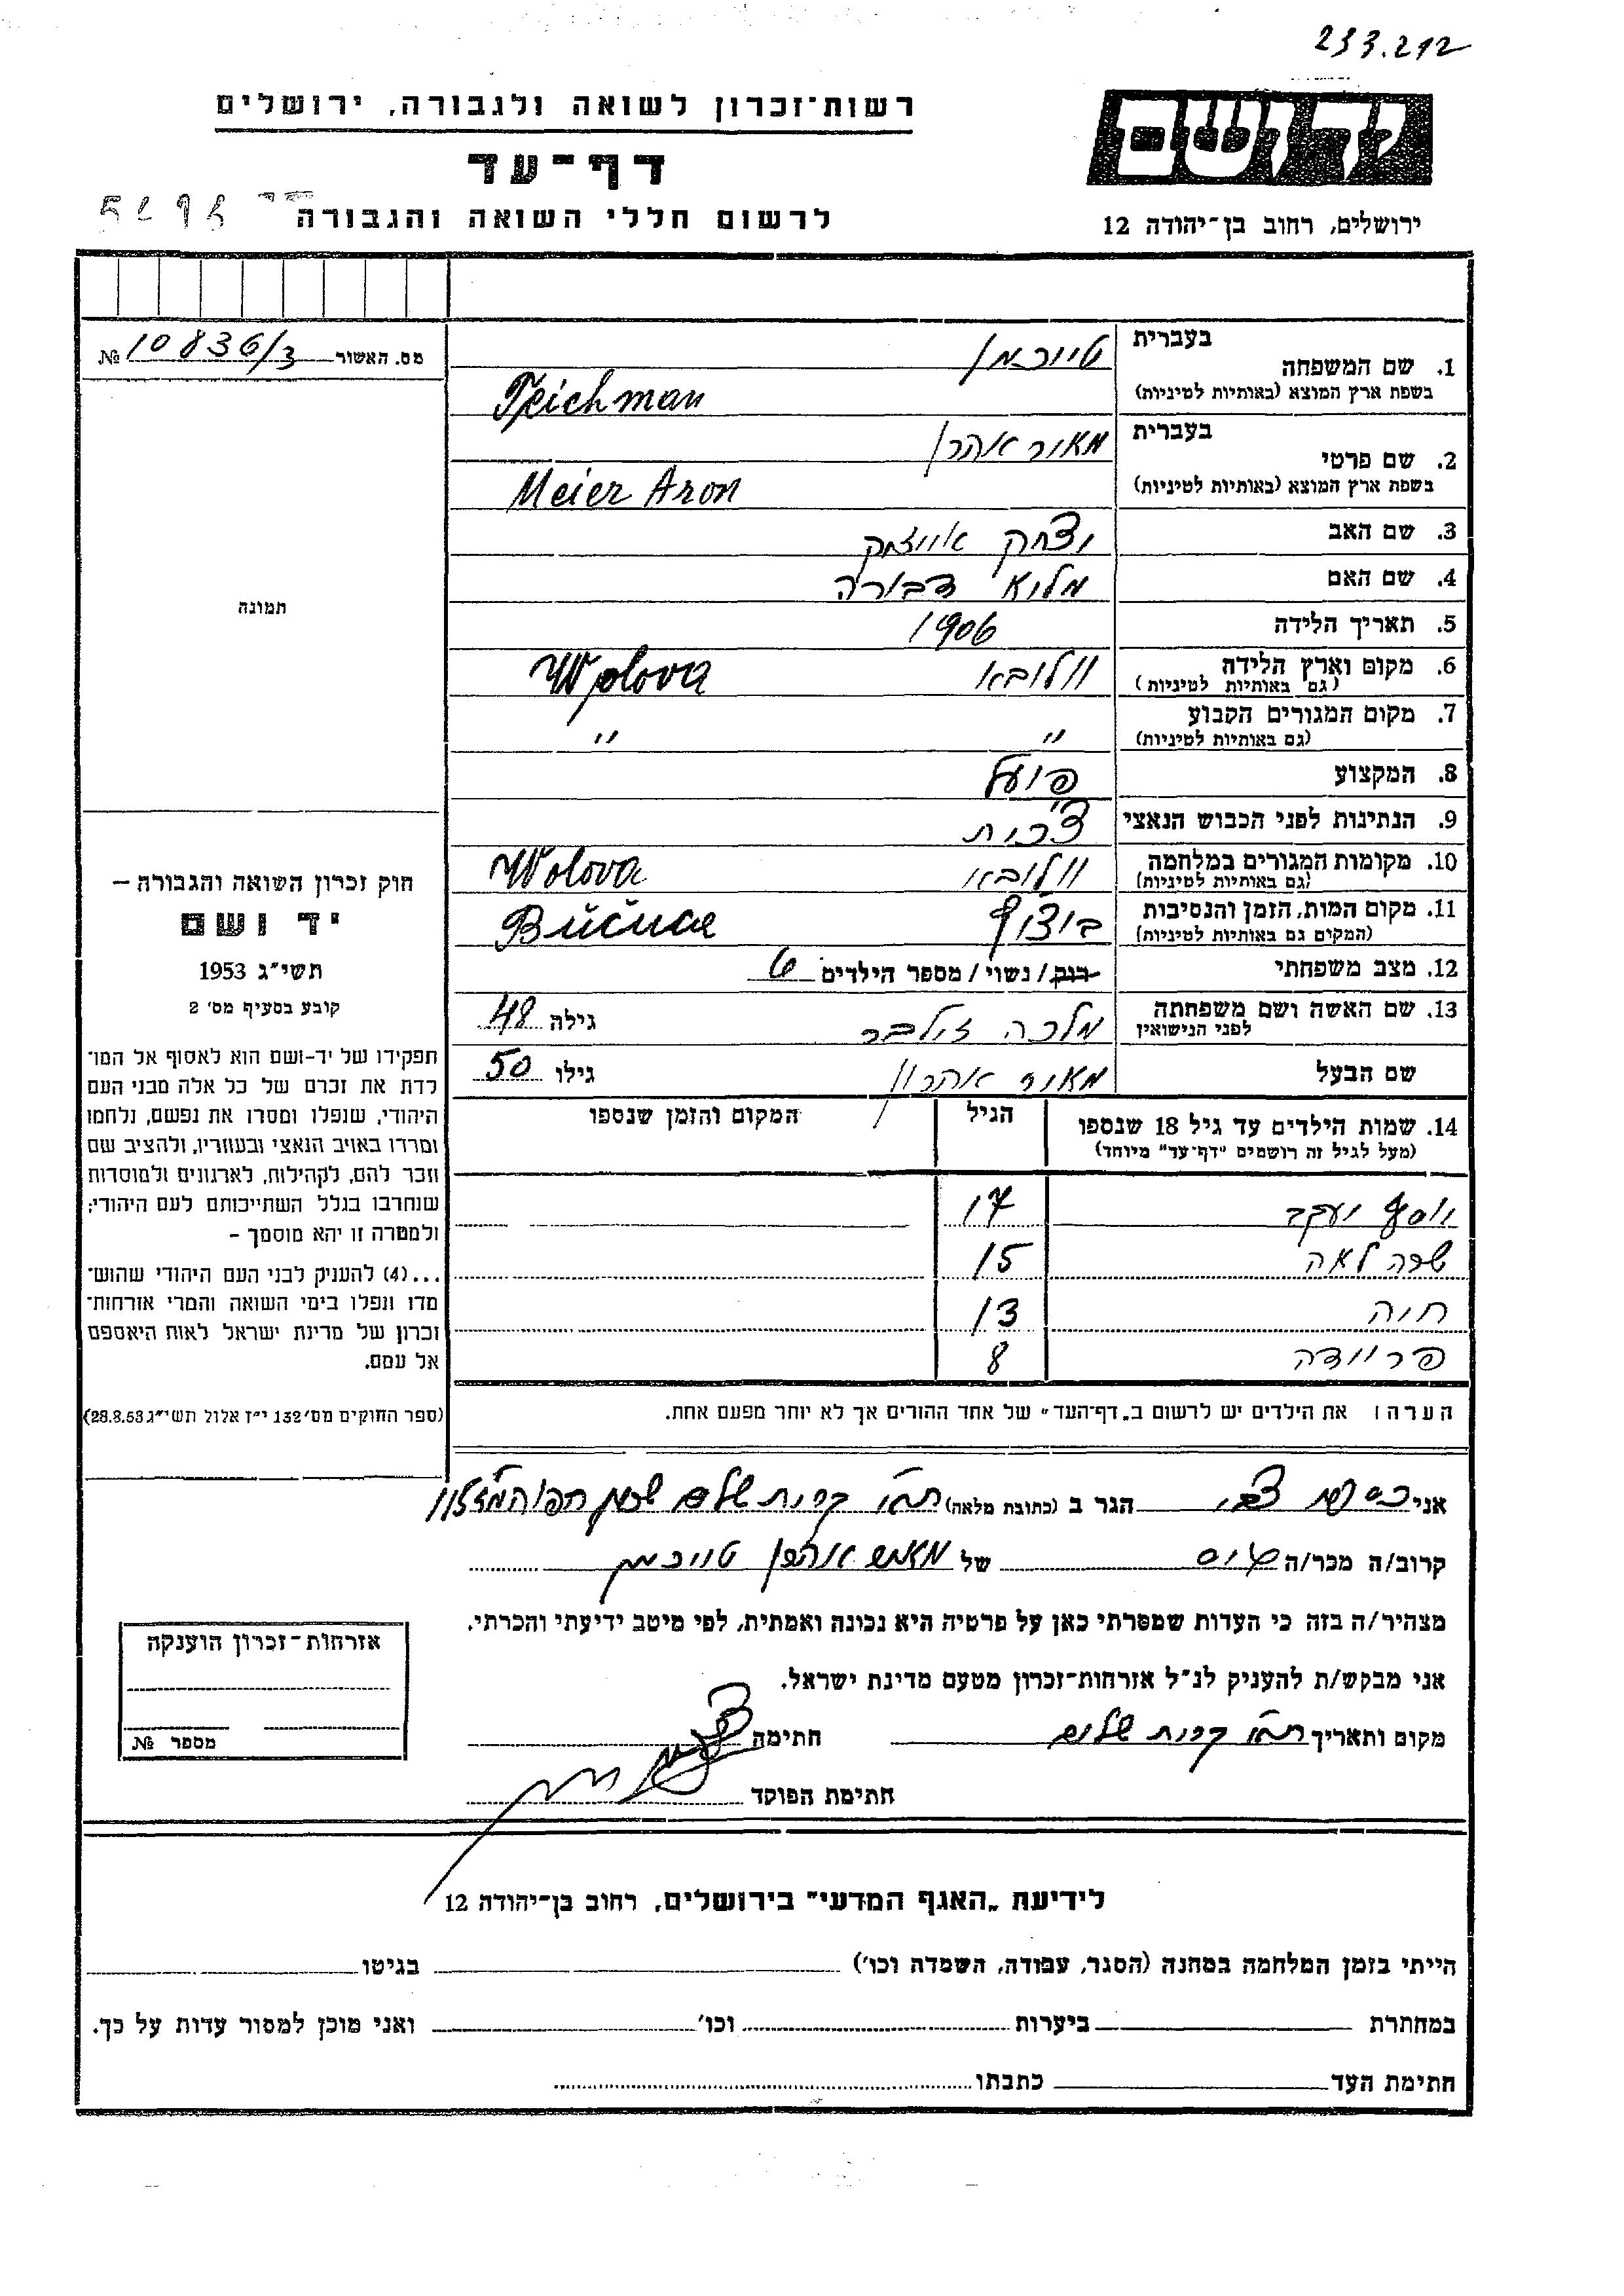 233.212
רשות־זכרון לשואה ולגבורה, ירושלים
דף־עד
לרשום חללי השואה והגבורה
ידושם
ירושלים, רחוב בן־יהודה 12
מס. האשור 10836/3 №
בעברית טייכמן
1. שם המשפחה
בשפת ארץ המוצא (באותיות לטיניות) Teichman
בעברית מאיר אהרן
2. שם פרטי
בשפת ארץ המוצא (באותיות לטיניות) Meier Aron
3. שם האב יצחק אייזיק
4. שם האם דבורה
5. תאריך הלידה 1906
6. מקום וארץ הלידה וולובא Wolova
(גם באותיות לטיניות)
7. מקום המגורים הקבוע " "
(גם באותיות לטיניות)
8. המקצוע פועל
9. הנתינות לפני הכבוש הנאצי צ'כית
10. מקומות המגורים במלחמה וולובא Wolova
(גם באותיות לטיניות)
11. מקום המות, הזמן והנסיבות
(המקום גם באותיות לטיניות)
12. מצב משפחתי רווק / נשוי / מספר הילדים 6
13. שם האשה ושם משפחתה מלכה זילבר גילה 48
לפני הנישואין
שם הבעל מאיר אהרון גילו 50
14. שמות הילדים עד גיל 18 שנספו הגיל המקום והזמן שנספו
(מעל לגיל זה רושמים "דף־עד" מיוחד)
יוסף יעקב 17
שרה לאה 15
חיה 13
פריידה 8
הערה: את הילדים יש לרשום ב„דף־העד" של אחד ההורים אך לא יותר מפעם אחת.
תמונה
חוק זכרון השואה והגבורה –
יד ושם
תשי"ג 1953
קובע בסעיף מס' 2
תפקידו של יד-ושם הוא לאסוף אל המו־
לדת את זכרם של כל אלה מבני העם
היהודי, שנפלו ומסרו את נפשם, נלחמו
ומרדו באויב הנאצי ובעוזריו, ולהציב שם
וזכר להם, לקהילות, לארגונים ולמוסדות
שנחרבו בגלל השתייכותם לעם היהודי;
ולמטרה זו יהא מוסמך –
...(4) להעניק לבני העם היהודי שהוש־
מדו ונפלו בימי השואה והמרי אזרחות־
זכרון של מדינת ישראל לאות היאספם
אל עמם.
(ספר החוקים מס' 132 י"ז אלול תשי"ג 28.8.53)
אני צבי הגר ב (כתובת מלאה) ת"א קרית שלום
קרוב/ה מכר/ה גיס של מאיר אהרן טייכמן
מצהיר/ה בזה כי העדות שמסרתי כאן על פרטיה היא נכונה ואמתית, לפי מיטב ידיעתי והכרתי.
אני מבקש/ת להעניק לנ"ל אזרחות־זכרון מטעם מדינת ישראל.
מקום ותאריך ת"א קרית שלום חתימה
חתימת הפוקד
אזרחות־זכרון הוענקה
מספר №
לידיעת „האגף המדעי" בירושלים, רחוב בן־יהודה 12
הייתי בזמן המלחמה במחנה (הסגר, עבודה, השמדה וכו') בגיטו
במחתרת ביערות וכו' ואני מוכן למסור עדות על כך.
חתימת העד כתבתו